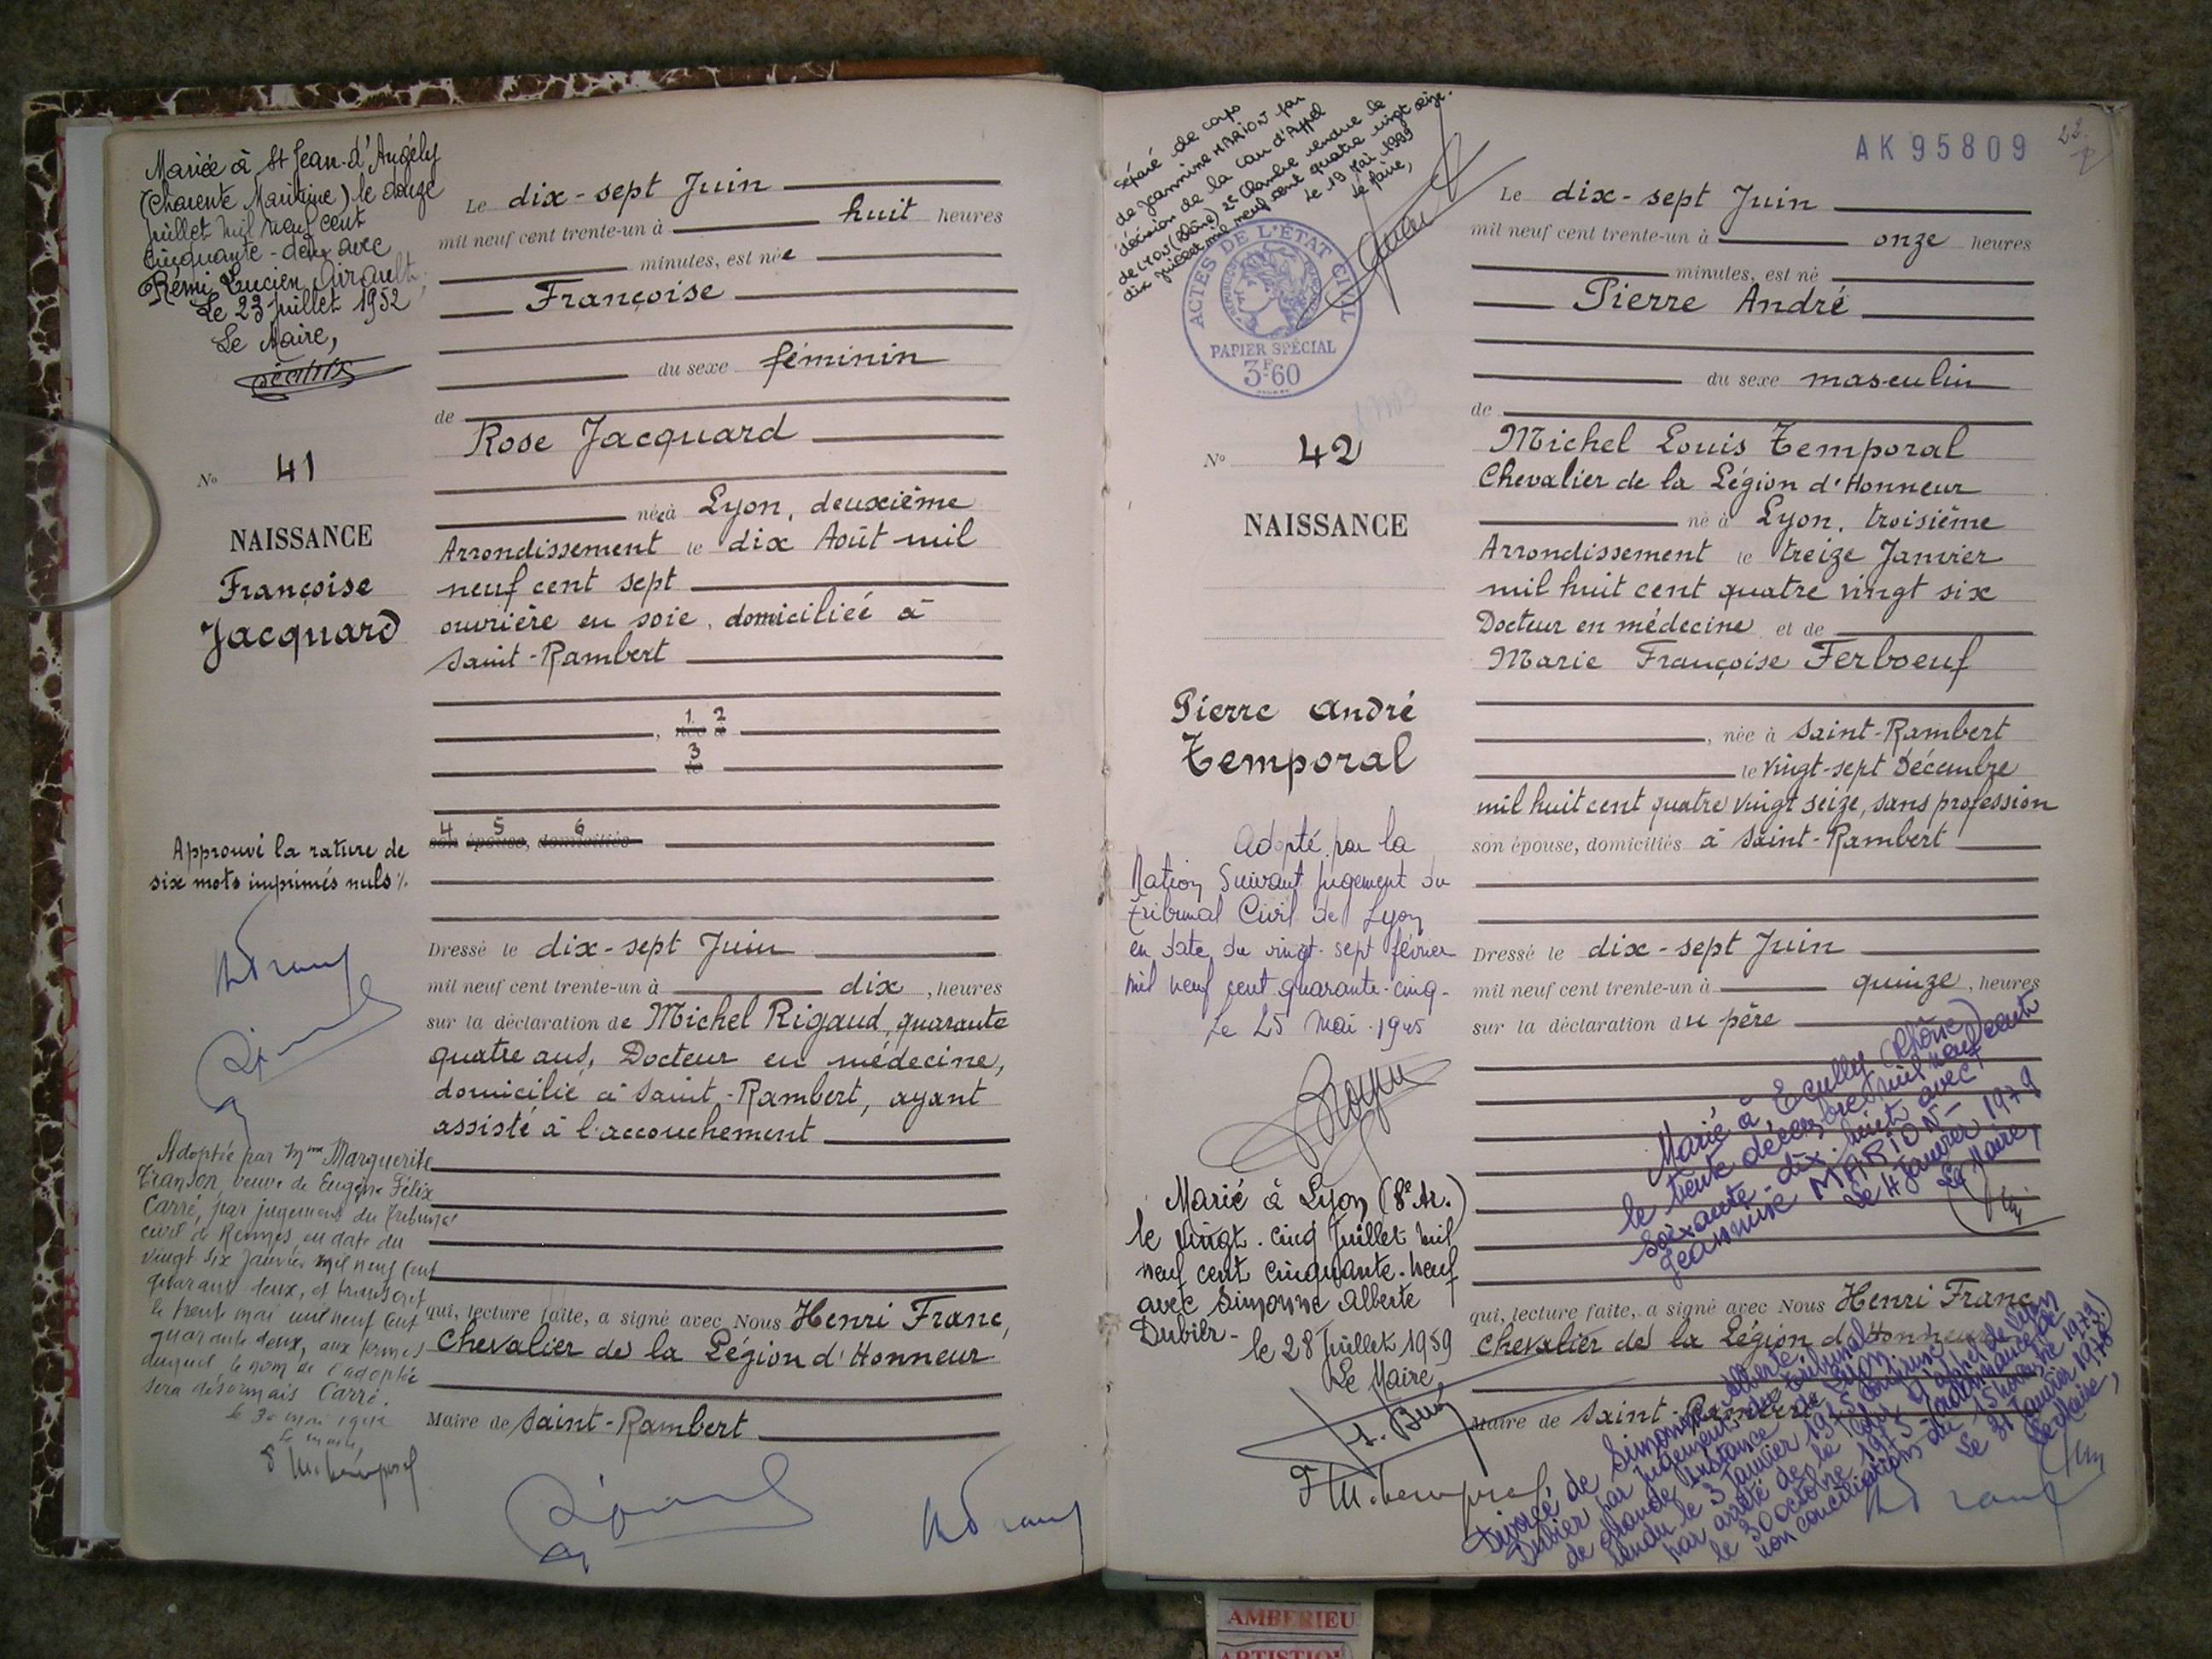 Mariée à St Jean-d'Angély
(Charente Maritime) le douze
juillet mil neuf cent
cinquante-deux avec
Rémi Lucien Airault,
Le 23 juillet 1952
Le Maire,
N° 41
NAISSANCE
Françoise
Jacquard
Approuvé la rature de
six mots imprimés nuls
Adoptée par Mme Marguerite
Transon, veuve de Eugène Félix
Carré, par jugement du Tribunal
civil de Rennes, en date du
vingt six Janvier mil neuf cent
quarante deux, et transcrit
le trente mai mil neuf cent
quarante deux, aux termes
duquel le nom de l'adoptée
sera désormais Carré.
Le 30 mai 1942
Le maire,
Le dix-sept Juin
mil neuf cent trente-un à huit heures
minutes, est née
Françoise
du sexe féminin
de
Rose Jacquard
née à Lyon, deuxième
Arrondissement le dix Août mil
neuf cent sept
ouvrière en soie, domiciliée à
Saint-Rambert
1 2
, née à
3
le
4 5 6
son épouse, domiciliés
Dressé le dix-sept Juin
mil neuf cent trente-un à dix, heures
sur la déclaration de Michel Rigaud, quarante
quatre ans, Docteur en médecine,
domicilié à Saint-Rambert, ayant
assisté à l'accouchement
qui, lecture faite, a signé avec Nous Henri Franc,
Chevalier de la Légion d'Honneur
Maire de Saint-Rambert
Séparé de corps
de Jeannine MARION par
décision de la Cour d'Appel
de LYON (Rhône) 2e Chambre rendue le
dix juillet mil neuf cent quatre vingt seize.
Le 19 Mai 1999
Le Maire,
ACTES DE L'ÉTAT CIVIL
PAPIER SPÉCIAL
3F60
N° 42
NAISSANCE
Pierre André
Temporal
Adopté par la
Nation suivant jugement du
tribunal Civil de Lyon
en date du vingt-sept février
mil neuf cent quarante-cinq-
Le 25 Mai 1945
Marié à Lyon (8e Ar.)
le vingt-cinq Juillet mil
neuf cent cinquante-neuf
avec Simonne Alberte
Dubier-
le 28 Juillet 1959
Le Maire,
AK 95809
Le dix-sept Juin
mil neuf cent trente-un à onze heures
minutes, est né
Pierre André
du sexe masculin
de
Michel Louis Temporal
Chevalier de la Légion d'Honneur
né à Lyon, troisième
Arrondissement le treize Janvier
mil huit cent quatre vingt six
Docteur en médecine et de
Marie Françoise Ferboeuf
, née à Saint-Rambert
le vingt-sept Décembre
mil huit cent quatre vingt seize, sans profession
son épouse, domiciliés à Saint-Rambert
Dressé le dix-sept Juin
mil neuf cent trente-un à quinze, heures
sur la déclaration du père
Marié à Ecully (Rhône)
le trente décembre mil neuf cent
soixante-dix-huit avec
Jeannine MARION-
Le 4 Janvier 1979
Le Maire,
qui, lecture faite, a signé avec Nous Henri Franc
Chevalier de la Légion d'Honneur
Maire de Saint-Rambert
Divorcé de Simonne Alberte
Dubier par jugement du Tribunal
de Grande Instance de Lyon
rendu le 3 Janvier 1975 confirmé
par arrêté de la Cour d'appel de Lyon
le 30 octobre 1975 (ordonnance de
non conciliation du 1973)
Le 31 Janvier 1978
Le Maire,
AMBERIEU